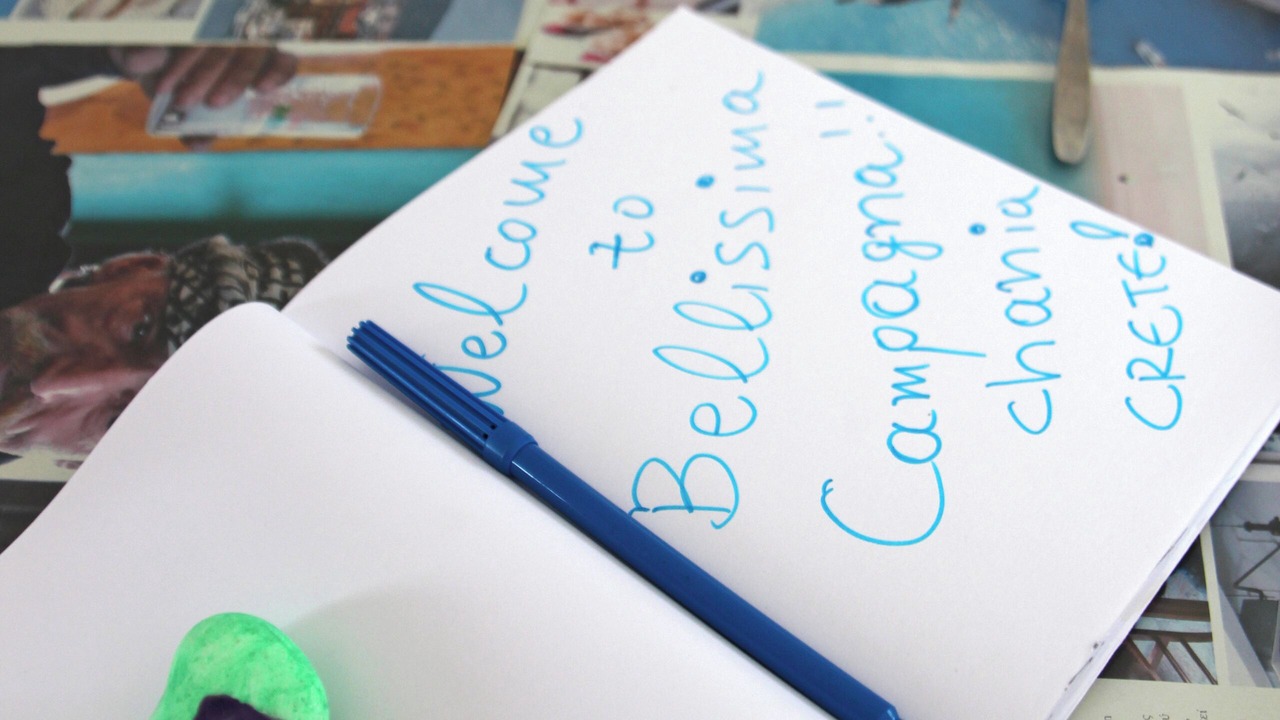 Welcome
to
Bellissima
Campagna!!
chania
CRETE!